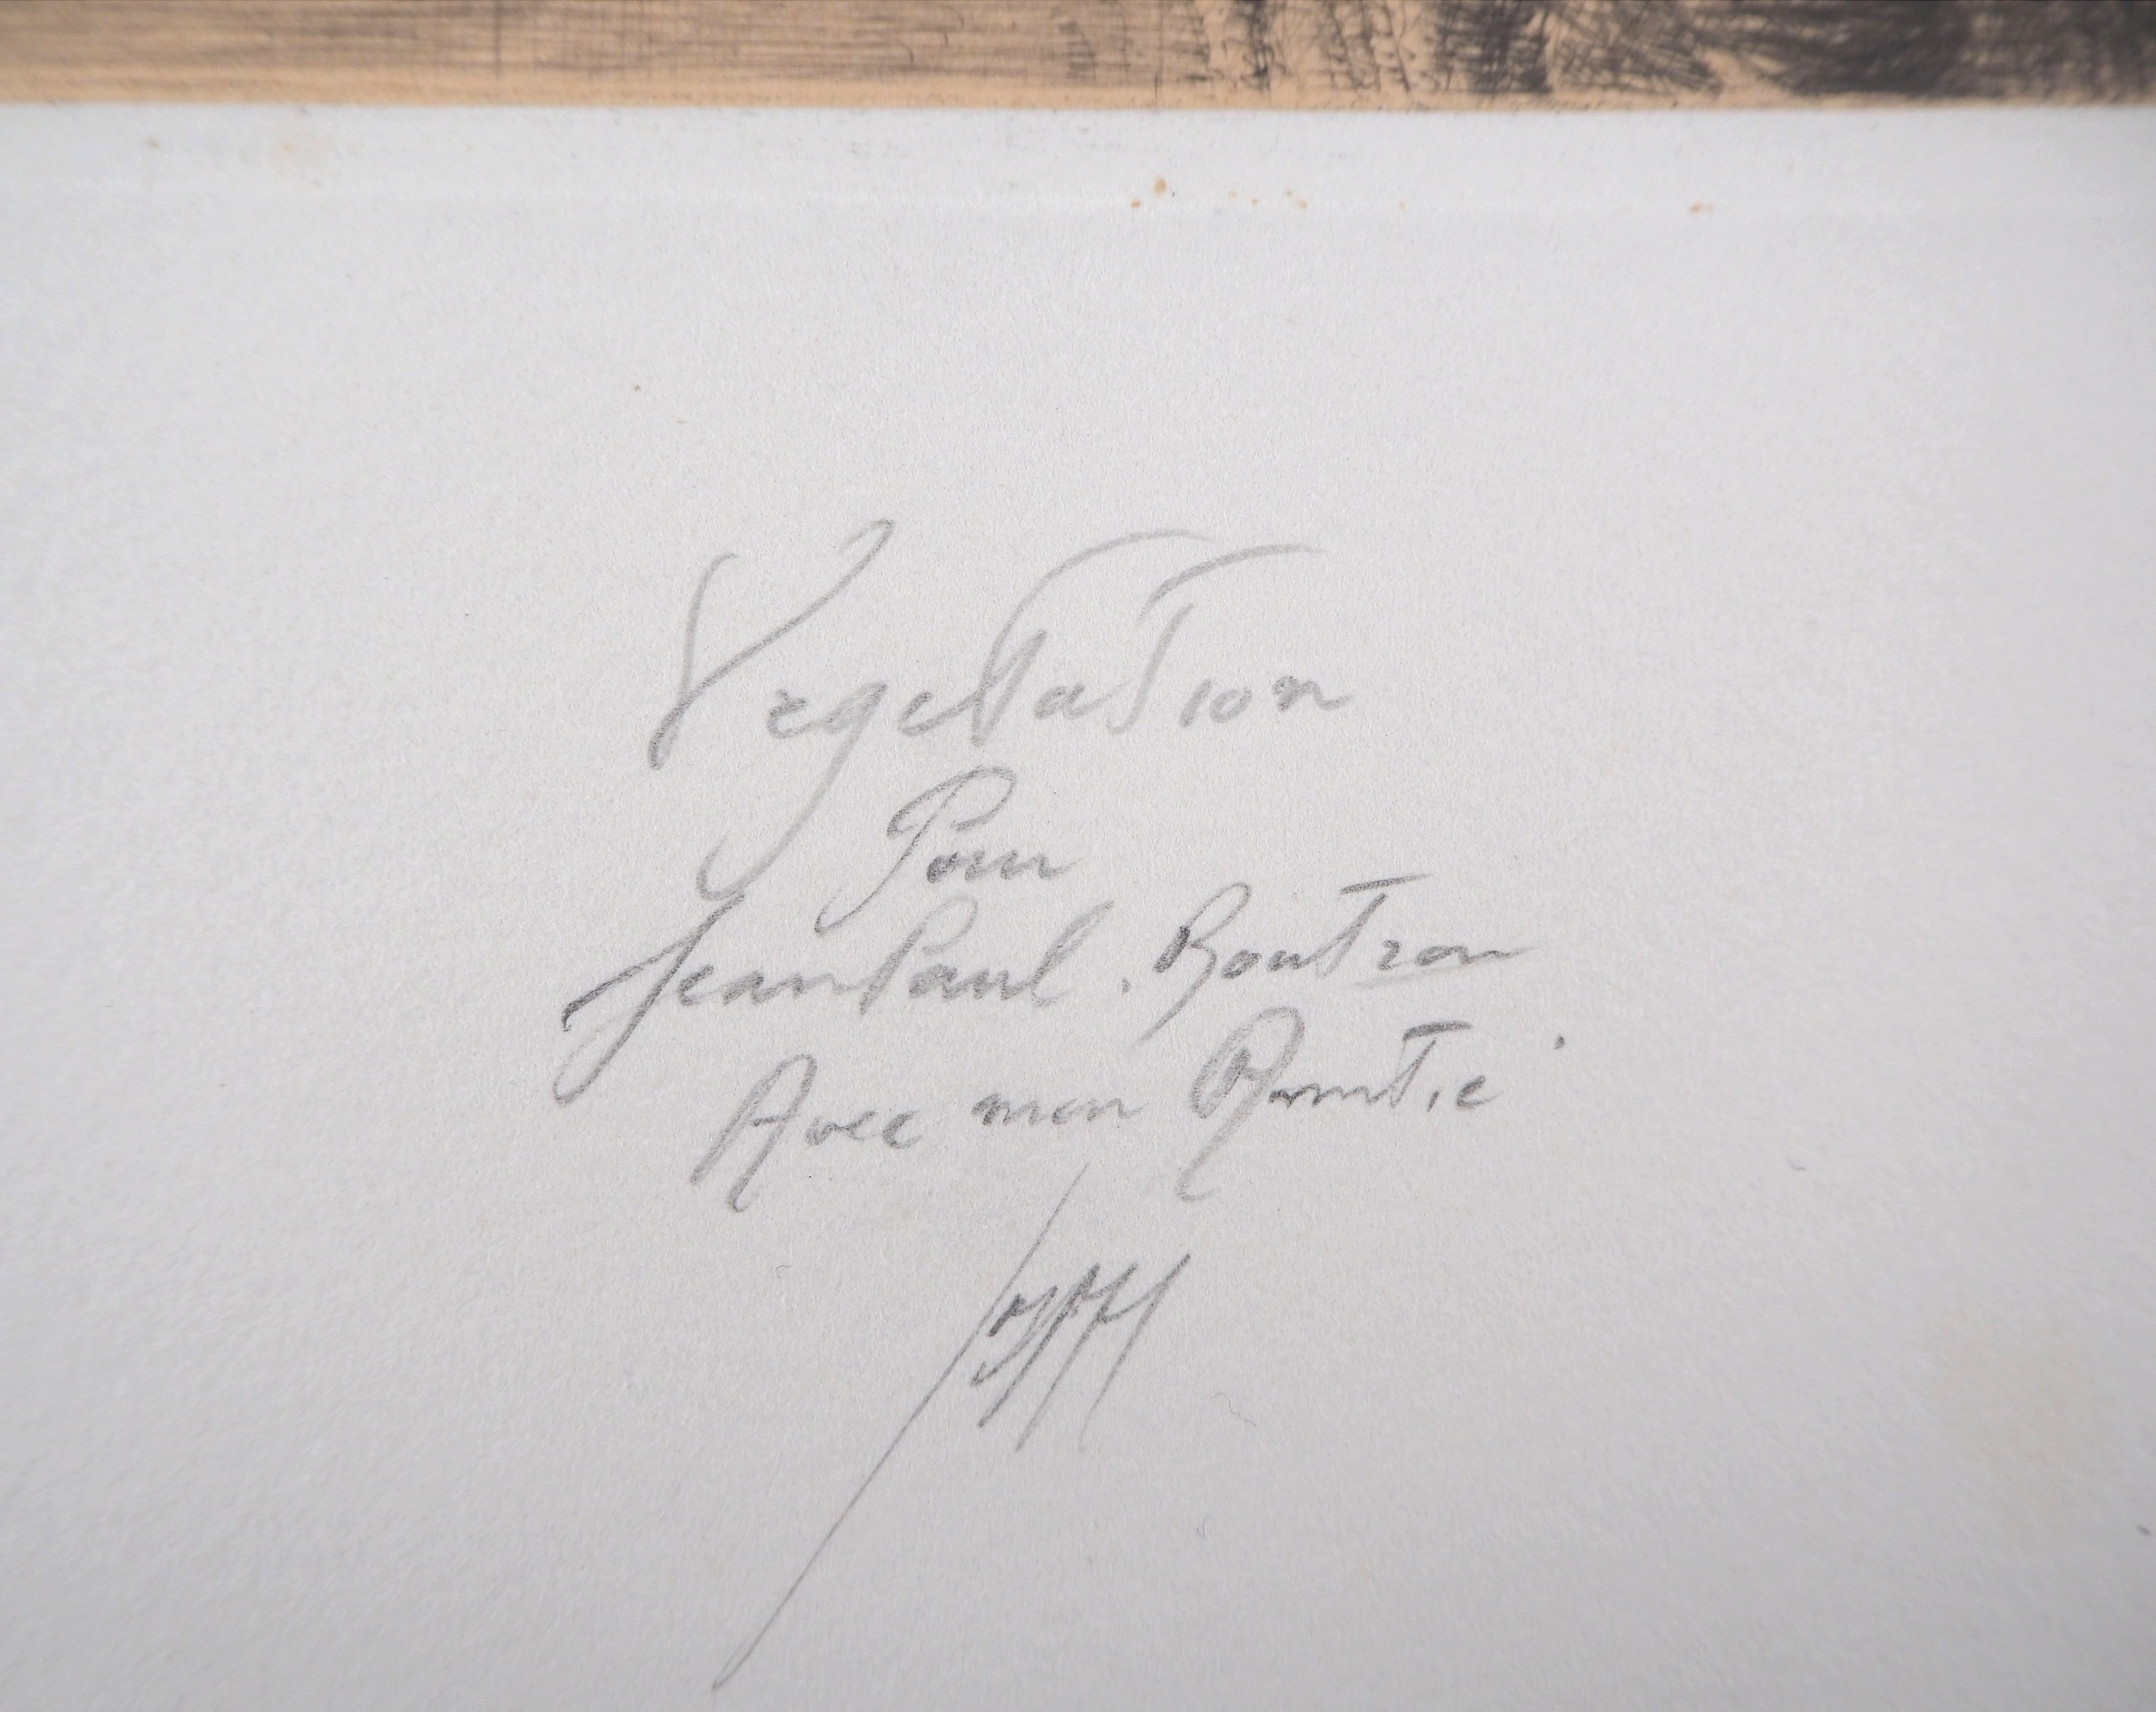 Vegetation
Pour
Jean Paul. Boutron
Avec mon Amitié